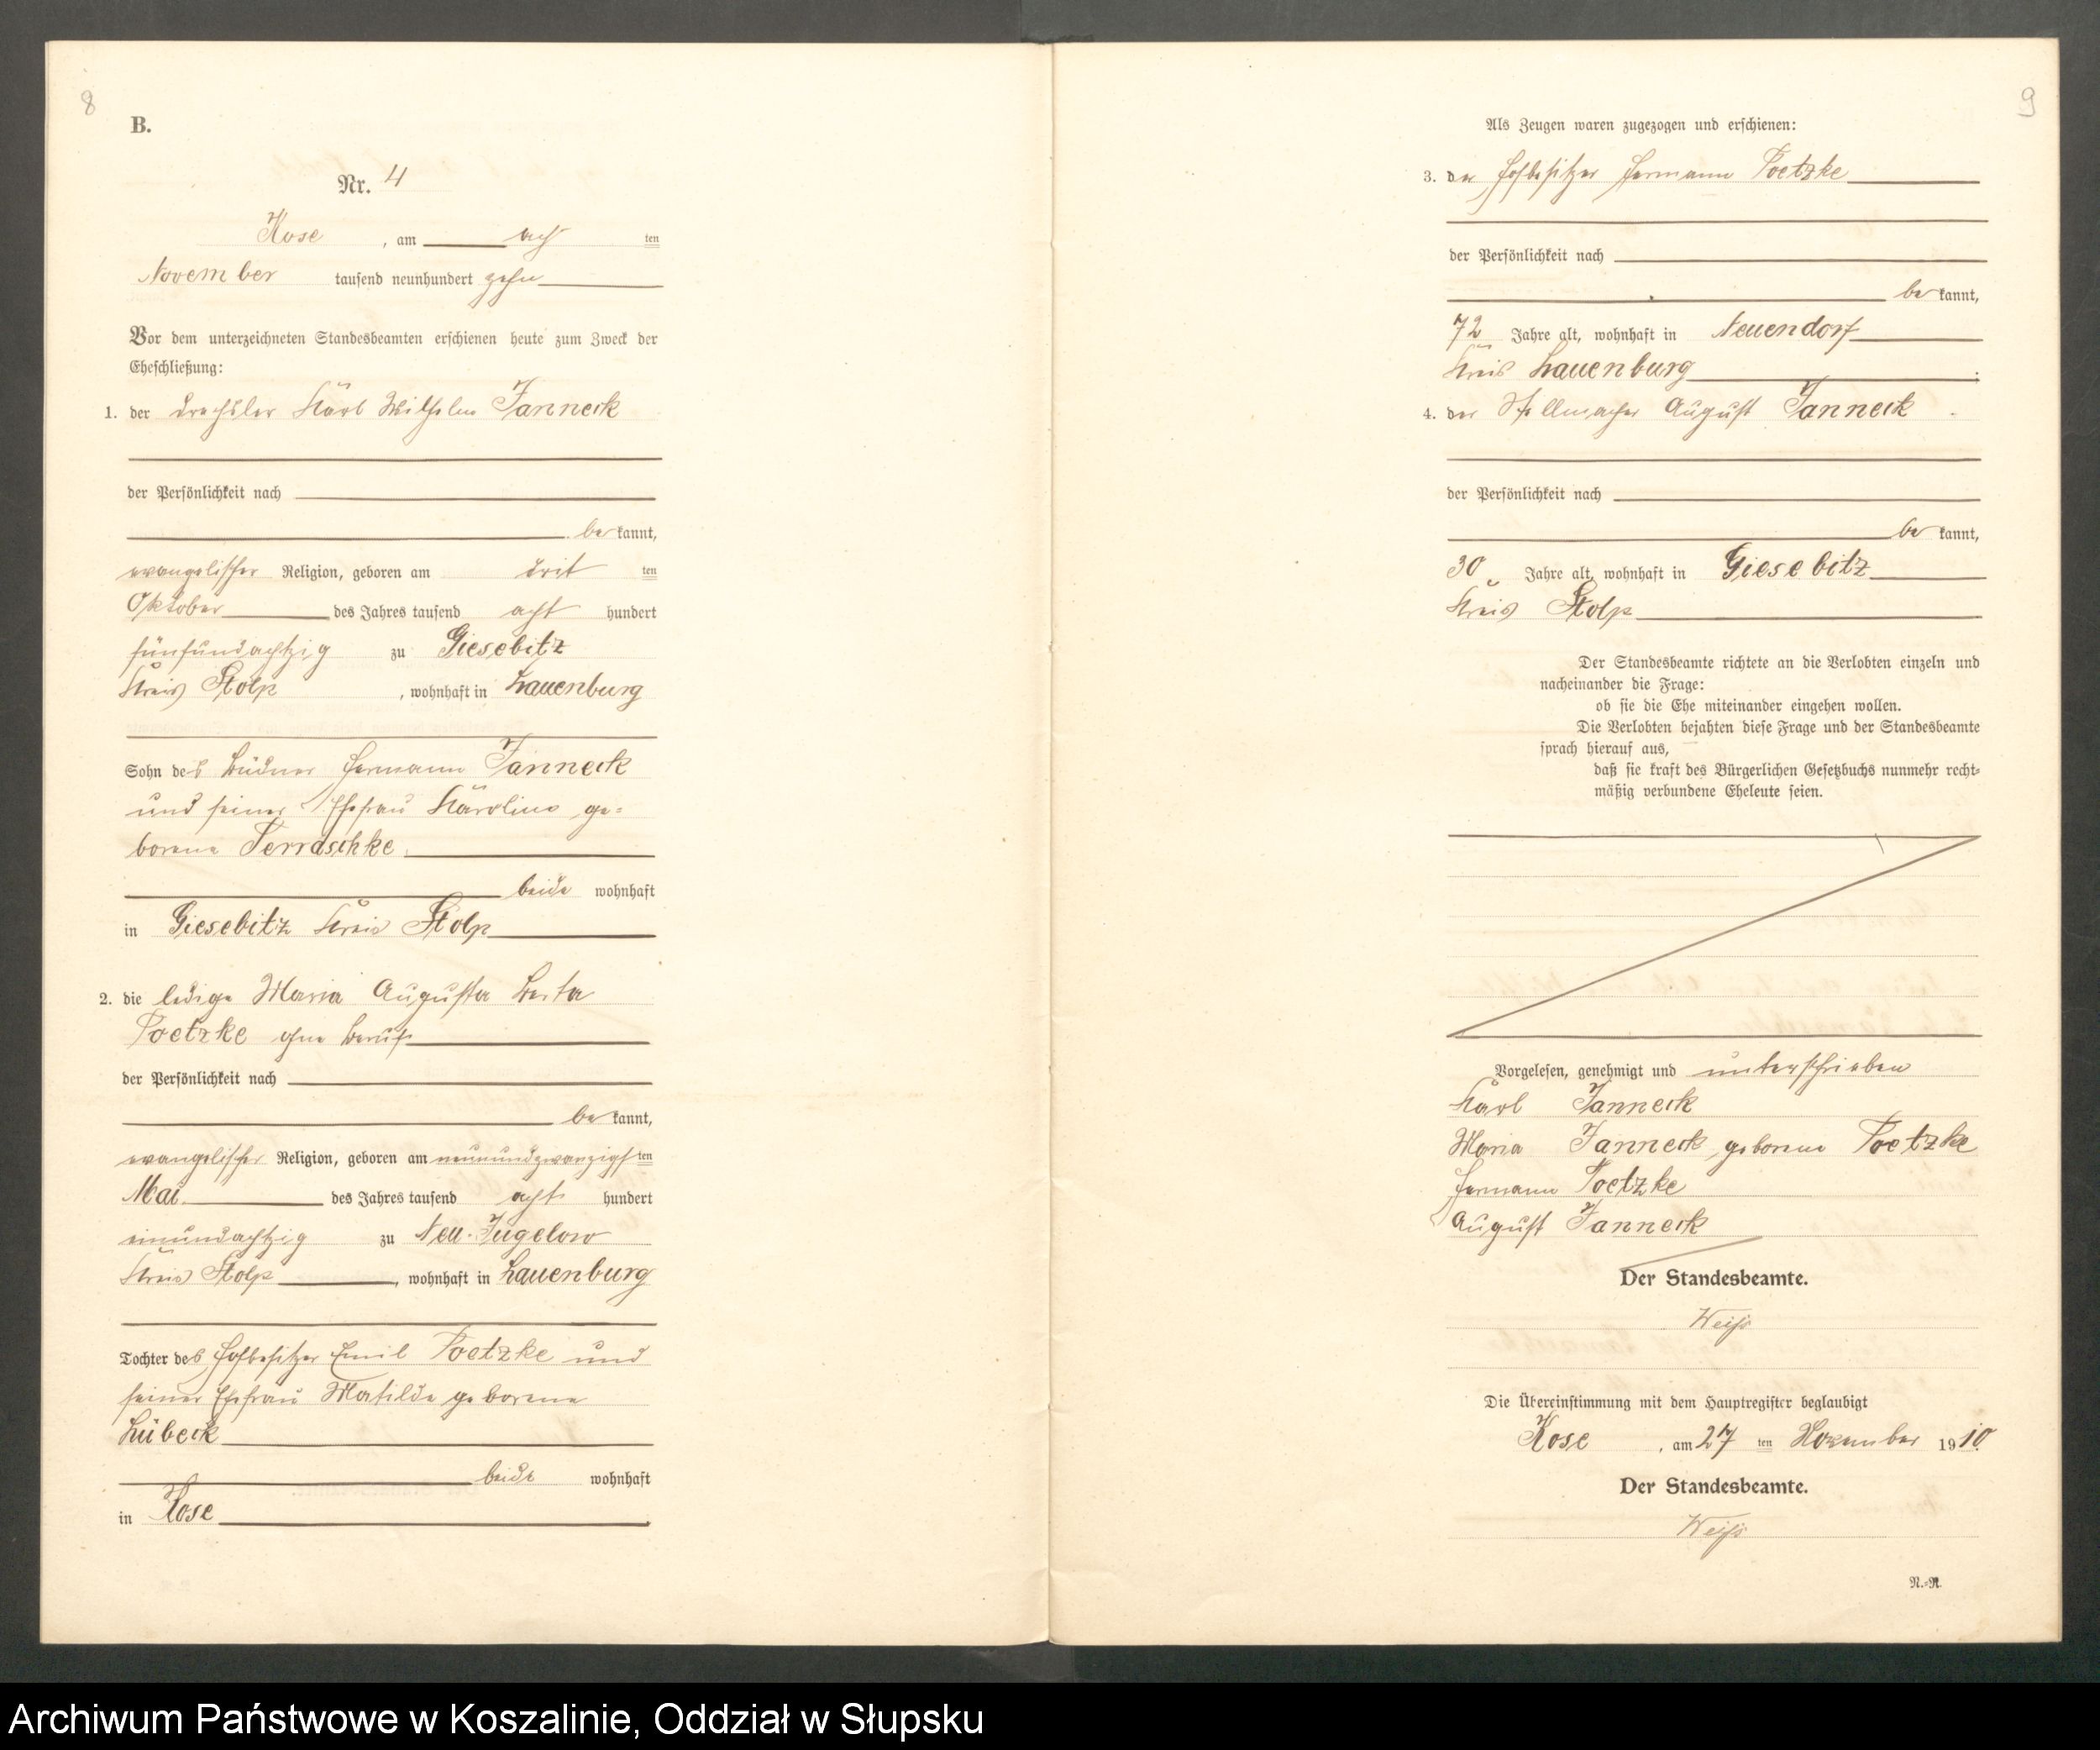 8
B.
Nr. 4
Kose, am ach ten
November tausend neunhundert zehn
Vor dem unterzeichneten Standesbeamten erschienen heute zum Zweck der
Eheschließung:
1. der Drechsler Karl Wilhelm Janneck
der Persönlichkeit nach
be kannt,
evangelischer Religion, geboren am drit ten
Oktober des Jahres tausend acht hundert
fünfundachtzig zu Giesebitz
Kreis Stolp, wohnhaft in Lauenburg
Sohn des Büdner Hermann Janneck
und seiner Ehefrau Karoline ge=
borene Perraschke
beide wohnhaft
in Giesebitz Kreis Stolp
2. die ledige Maria Augusta Berta
Poetzke ohne Beruf
der Persönlichkeit nach
be kannt,
evangelischer Religion, geboren am neunundzwanzigsten
Mai des Jahres tausend acht hundert
einundachtzig zu Neu-Jugelow
Kreis Stolp, wohnhaft in Lauenburg
Tochter des Hofbesitzer Emil Poetzke und
seiner Ehefrau Matilde geborene
Lübeck
beide wohnhaft
in Kose
9
Als Zeugen waren zugezogen und erschienen:
3. der Hofbesitzer Hermann Poetzke
der Persönlichkeit nach
be kannt,
72 Jahre alt, wohnhaft in Neuendorf
Kreis Lauenburg;
4. der Stellmacher August Janneck
der Persönlichkeit nach
be kannt,
30 Jahre alt, wohnhaft in Giesebitz
Kreis Stolp
Der Standesbeamte richtete an die Verlobten einzeln und
nacheinander die Frage:
ob sie die Ehe miteinander eingehen wollen.
Die Verlobten bejahten diese Frage und der Standesbeamte
sprach hierauf aus,
daß sie kraft des Bürgerlichen Gesetzbuchs nunmehr recht=
mäßig verbundene Eheleute seien.
Vorgelesen, genehmigt und unterschrieben
Karl Janneck
Maria Janneck geborene Poetzke
Hermann Poetzke
August Janneck
Der Standesbeamte.
Weiß
Die Übereinstimmung mit dem Hauptregister beglaubigt
Kose, am 27 ten November 1910.
Der Standesbeamte.
Weiß
N.=R.
Archiwum Państwowe w Koszalinie, Oddział w Słupsku